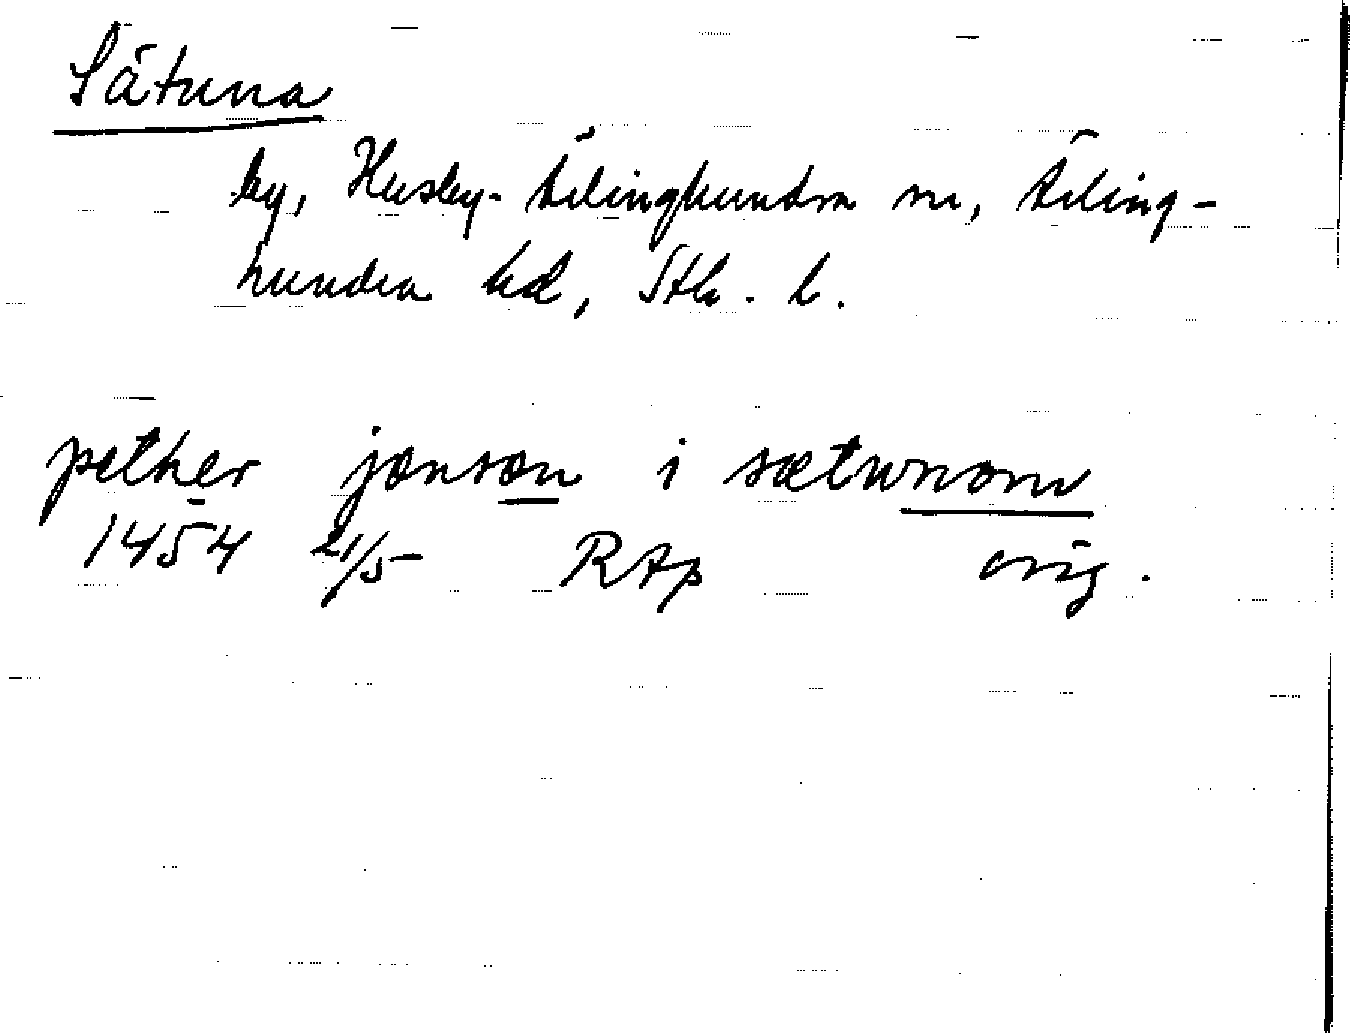 Sätuna
by, Husby-Ärlinghundra sn, Ärling-
hundra hd, Sthm. l.
pether jonson i sætunom
1454 21/5 RAp orig.